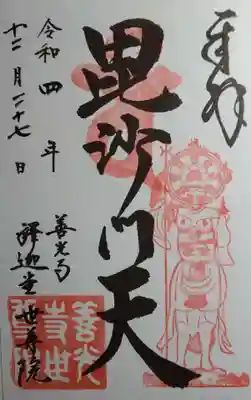 奉拝
毘沙門天
令和四年
十二月二十七日
善光寺
釋迦堂世尊院